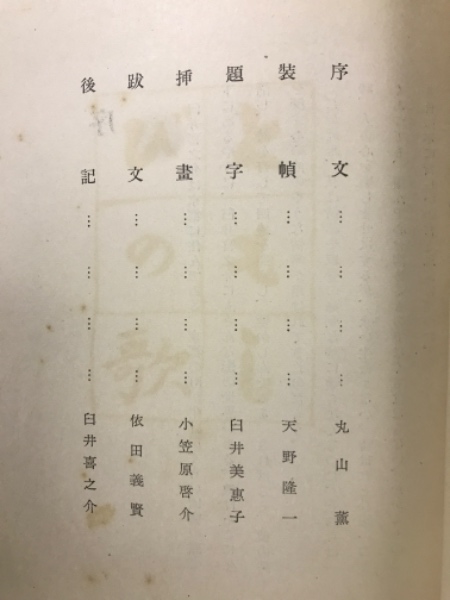 序文…………丸山薫
装幀…………天野隆一
題字…………臼井美惠子
挿畫…………小笠原啓介
跋文…………依田義賢
後記…………臼井喜之介
ともしびの歌